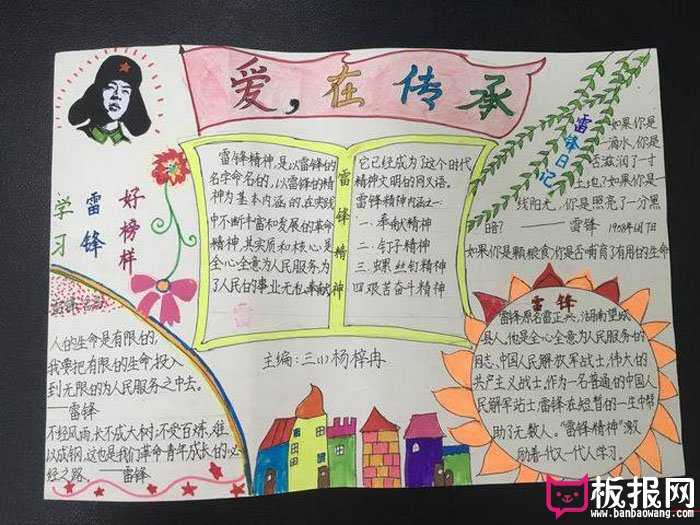 爱，在传承
学习
雷锋
好榜样
雷锋精神
雷锋精神，是以雷锋的
名字命名的，以雷锋的精
神为基本内涵的，在实践
中不断丰富和发展的革命
精神，其实质和核心是
全心全意为人民服务，为
了人民的事业无私奉献
它已经成为了这个时代
精神文明的同义语。
雷锋精神内涵之一：
一.奉献精神
二.钉子精神
三.螺丝钉精神
四艰苦奋斗精神
雷锋日记
如果你是一
滴水，你是
否滋润了一寸
土地？如果你是一
线阳光，你是否照亮了一分黑
暗？——雷锋
如果你是颗粮食，你是否哺育了有用的生命
主编：三(1)杨梓冉
人的生命是有限的，
我要把有限的生命，投入
到无限的为人民服务之中去。
——雷锋
不经风雨，长不成大树；不受百炼，难
以成钢。这也是我们革命青年成长的必
经之路。——雷锋
雷锋
雷锋原名雷正兴，湖南望城
县人，他是全心全意为人民服务的
同志、中国人民解放军战士，伟大的
共产主义战士，作为一名普通的中国人
民解放军战士雷锋在短暂的一生中帮
助了无数人。“雷锋精神”激
励着一代又一代人学习。
板报网
www.banbaowang.com